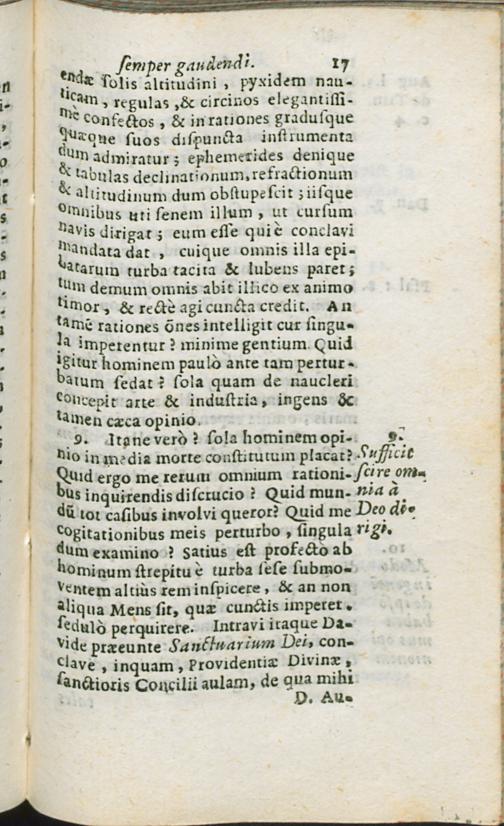 semper gaudendi. 17
endæ solis altitudini, pyxidem nau-
ticam, regulas, & circinos elegantissi-
mè confectos, & in rationes gradusque
quæque suos dispuncta instrumenta
dum admiratur; ephemerides denique
& tabulas declinationum, refractionum
& altitudinum dum obstupescit; iisque
omnibus uti senem illum, ut cursum
navis dirigat; eum esse qui è conclavi
mandata dat, cuique omnis illa epi-
batarum turba tacita & lubens paret;
tum demum omnis abit illico ex animo
timor, & rectè agi cuncta credit. An
tamē rationes ōnes intelligit cur singu-
la imperentur? minime gentium. Quid
igitur hominem paulò ante tam pertur-
batum sedat? sola quam de naucleri
concepit arte & industria, ingens &
tamen cæca opinio.
9. Itane verò? sola hominem opi-
nio in media morte constitutum placat?
Quid ergo me rerum omnium rationi-
bus inquirendis discrucio? Quid mun-
dū tot casibus involvi queror? Quid me
cogitationibus meis perturbo, singula
dum examino? Satius est profectò ab
hominum strepitu è turba sese submo-
ventem altiùs rem inspicere, & an non
aliqua Mens sit, quæ cunctis imperet,
sedulò perquirere. Intravi itaque Da-
vide præeunte Sanctuarium Dei, con-
clave, inquam, Providentiæ Divinæ,
sanctioris Concilii aulam, de qua mihi
D. Au-
9.
Sufficit
scire om-
nia à
Deo di-
rigi.